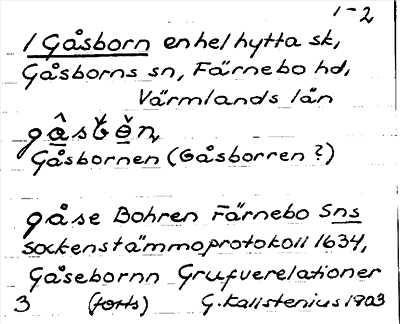 1-2
1 Gåsborn en hel hytta sk,
Gåsborns sn, Färnebo hd,
Värmlands län
Gåsbornen (Gåsborren ?)
gåse Bohren Färnebo Sns
sockenstämmoprotokoll 1634,
Gåsebornn Grufverelationer
3 (forts) G. Kallstenius 1903